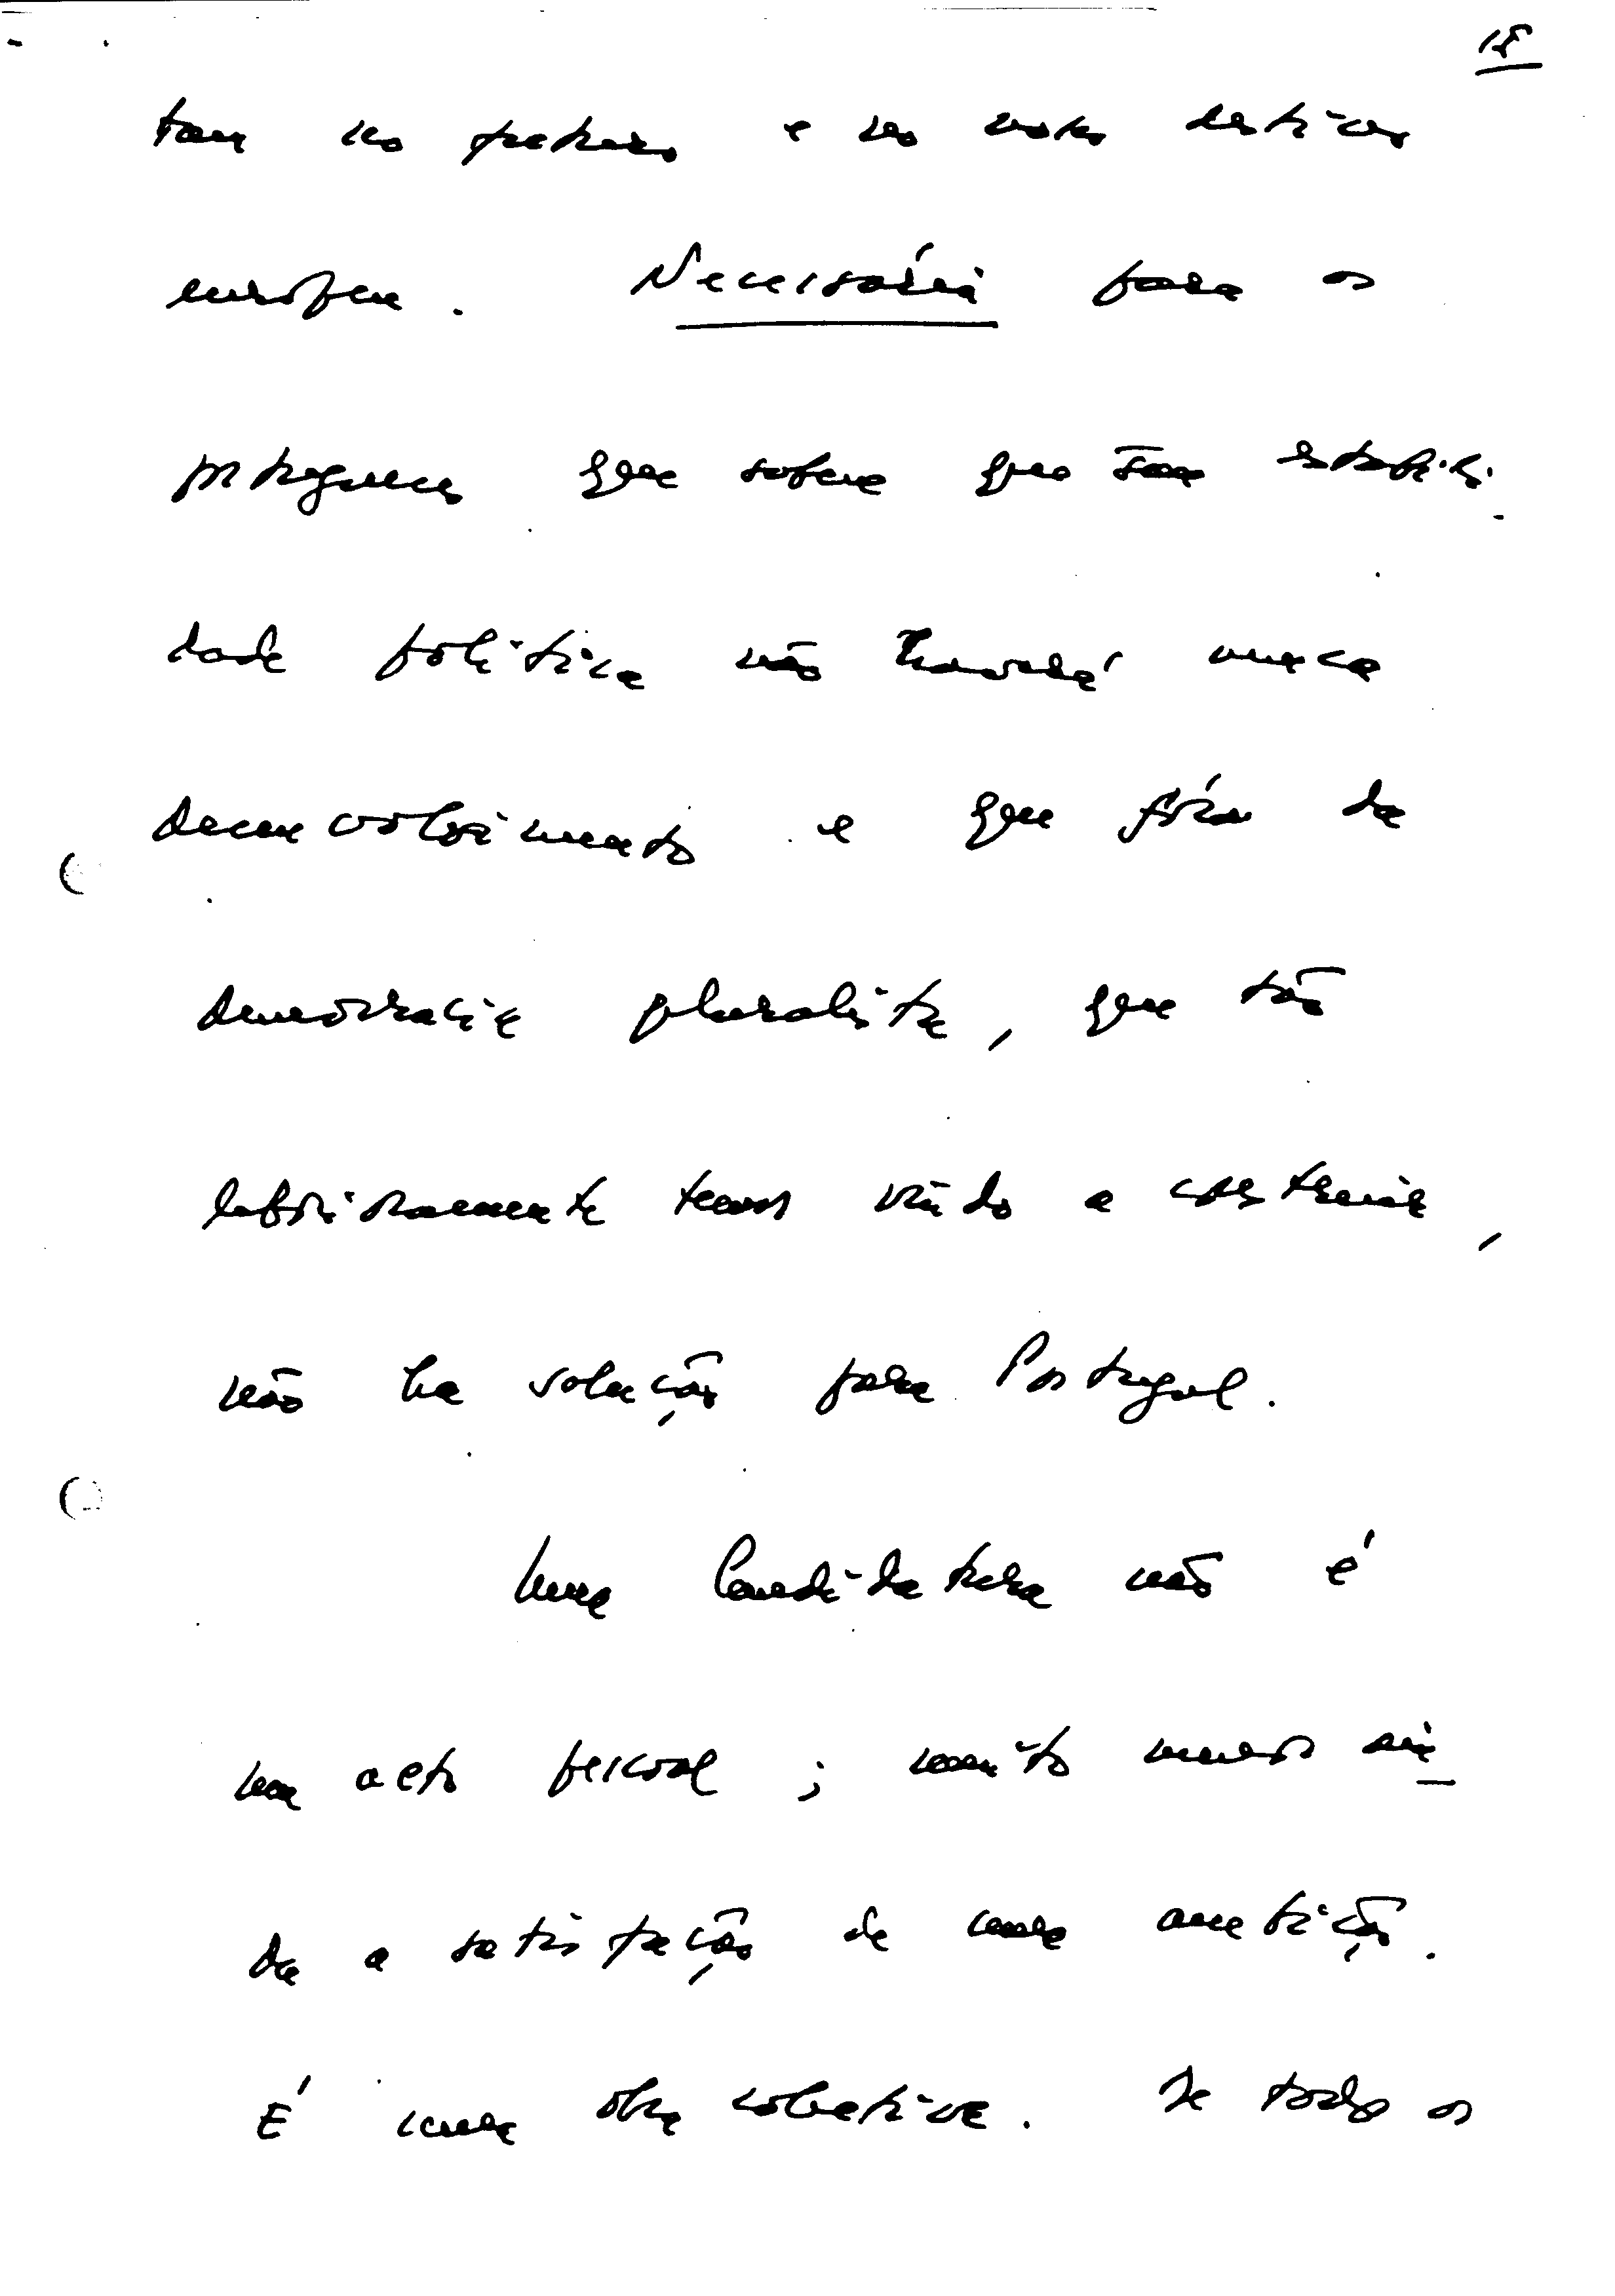 15
tam no futuro e no nosso destino
europeu. Necessária para os
portugueses que sabem que sem estabili-
dade política não haverá nunca
desenvolvimento e que fóra da
democracia pluralista, que tão
laboriosamente temos vindo a construir,
não ha solução para Portugal.
Uma Candidatura não é
um acto pessoal; muito menos ain-
da a satisfação de uma ambição.
É uma obra colectiva. De todos os